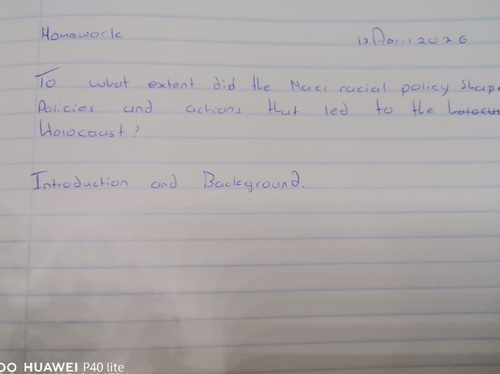 Homework 12 April 2026
To what extent did the Nazi racial policy shape
Policies and actions that led to the
Holocaust?
Introduction and Background.
HUAWEI P40 lite